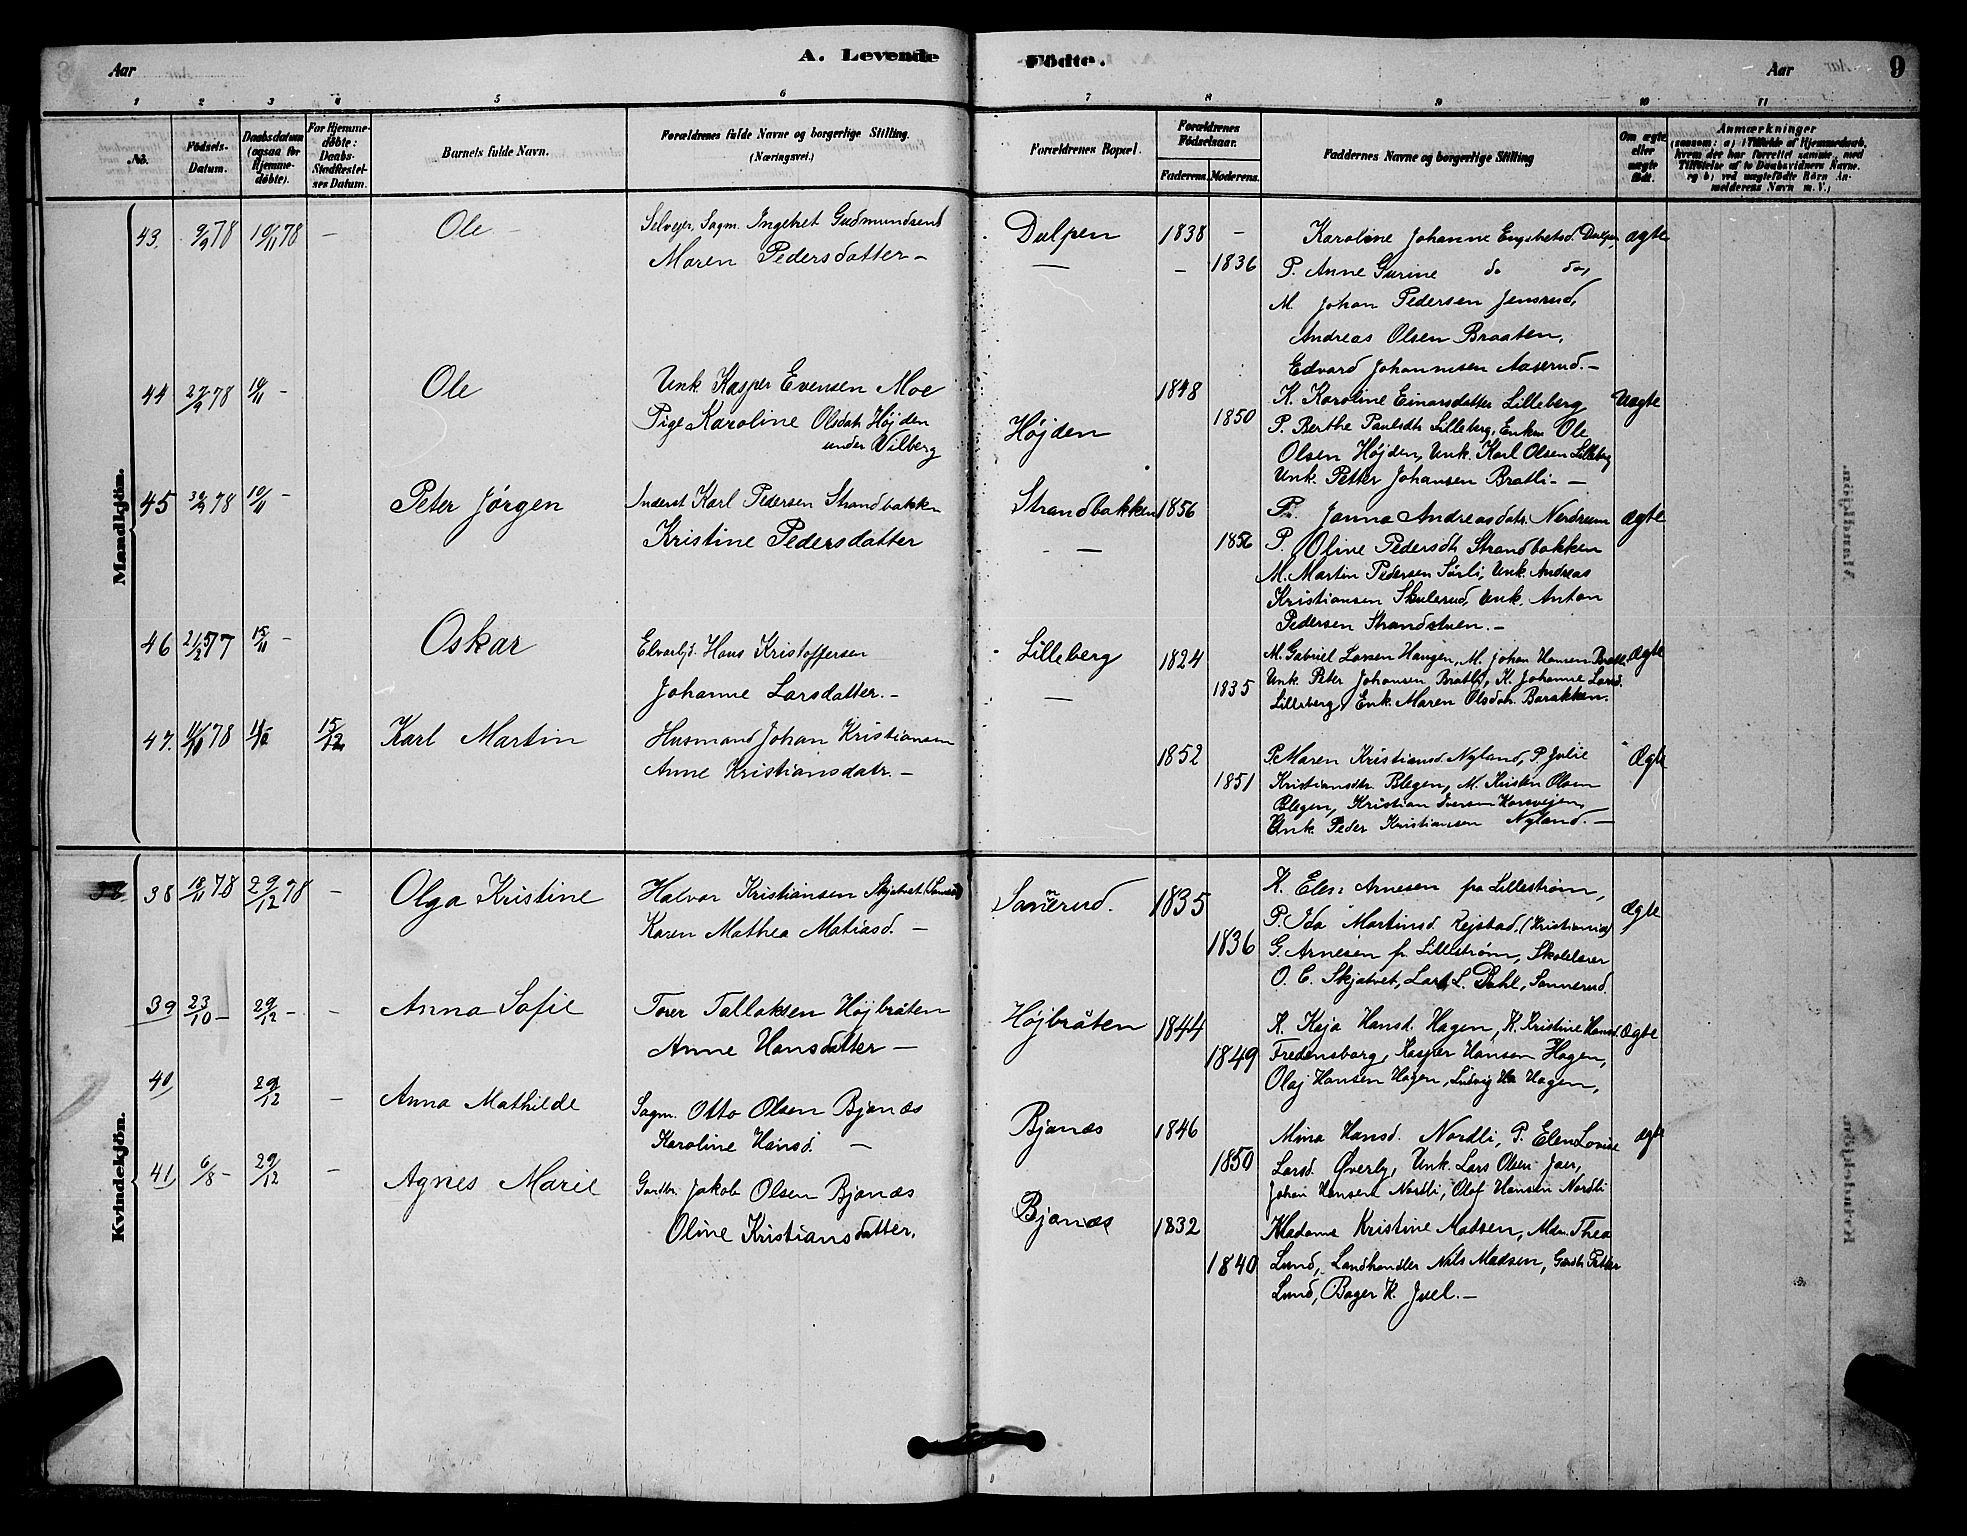 Aar
A. Levende
Födte.
Aar
9
1 2 3 4 5 6 7 8 9 10 11
No.
Födsels-Datum.
Daabsdatum (ogsaa for Hjemme-döbte).
For Hjemme-döbte: Daabs-Stadfæstelses Datum.
Barnets fulde Navn.
Forældrenes fulde Navne og borgerlige Stilling.
(Næringsvei.)
Forældrenes Bopæl.
Forældrenes Födselsaar.
Faderens. Moderens.
Faddernes Navne og borgerlige Stilling
Om ægte eller uægte födt.
Anmærkninger
Mandkjön.
43. 9/9 78 10/11 78 – Ole – Selvejer, Sagm. Ingebret Gudmundsen Dulpen 1838 – Karoline Johanne Engebretsd. Dulpen ægte
Maren Pedersdatter – — – 1836 P. Anne Gurine do do,
M. Johan Pedersen Jensrud,
Andreas Olsen Braaten,
Edvard Johannesen Aaserud. –
44 27/9 78 10/11 – Ole Unk Kasper Evensen Moe 1848 K. Karoline Einarsdatter Lilleberg Uægte
Pige Karoline Olsdatr Højden Højden 1850 P. Berthe Paulsdtr Lilleberg, Enkm Ole
under Vilberg Olsen Højden, Unk. Karl Olsen Lilleberg
Unk. Petter Johansen Bratli – –
45 30/9 78 10/11 – Peter Jørgen Inderst Karl Pedersen Strandbakken Strandbakken 1856 P. Janna Andreasdatr. Nerdrum ægte
Kristine Pedersdatter – — 1856 P. Oline Pedersdtr Strandbakken
M. Martin Pedersen Sørli, Unk. Andreas
Kristiansen Skulerud, Unk. Anton
Pedersen Strandstuen. –
46 21/12 77 15/11 – Oskar Hans Kristoffersen Lilleberg 1824 M. Gabriel Larsen Haugen, M. Johan Hansen Ægte
Johanne Larsdatter. – — 1835 Unk. Peter Johansen Bratli, K. Johanne Larsd.
Lilleberg, Enk. Maren Olsdatr. Barakken.
47. 78 15/12 Karl Martin Husmand Johan Kristiansen 1852 P. Maren Kristiansd. Nyland, P. Julie Ægte
Anne Kristiansdatr. – 1851 Kristiansdtr. Blegen, M. Kristen Olsen
Blegen, Kristian Iversen Korsvejen,
Unk. Peder Kristiansen Nyland. –
Kvindekjön.
38 18/11 78 29/12 78 – Olga Kristine Halvor Kristiansen Skjatvet Sannerud. 1835 K. Arnesen fra Lillestrøm, Ægte
Karen Mathea Matiasd. – 1836 P. Ida Martinsd. Rejstad, (Kristiania)
G. Arnesen fr. Lillestrøm, Skolelærer
O. C. Skjatvet, Lars L. Dahl, Sannerud.
39 23/10 – 29/12 – – Anna Sofie Torer Tallaksen Højbråten Højbråten 1844 K. Kaja Hansd. Hagen, K. Kristine Hansd. Ægte
Anne Hansdatter – 1849 Fredensborg, Kasper Hansen Hagen,
Olaf Hansen Hagen, Ludvig Ha Hagen,
40 29/12 – Anna Mathilde Sagm. Otto Olsen Bjanæs Bjanæs 1846 Mina Hansd. Nordli, P. Elen Lovise ægte
Karoline Hansd. – 1850 Larsd. Øverby, Unk. Lars Olsen Jaer,
Johan Hansen Nordli, Olaf Hansen Nordli
41 6/8 – 29/12 – Agnes Marie Gaardbr. Jakob Olsen Bjanæs Bjanæs 1832 Madame Kristine Madsen, Mdm. Thea
Oline Kristiansdatter. 1840 Lund, Landhandler Nils Madsen, Gaardb. Petter
Lund, Bager K. Juel. –